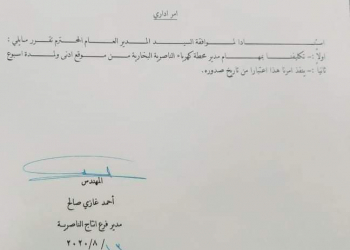 امر اداري
استنادا لموافقة السيد المدير العام المحترم تقرر مايلي :
اولاً :- تكليفنا بمهام مدير محطة كهرباء الناصرية البخارية من موقع ادنى ولمدة اسبوع
ثانيا :- ينفذ امرنا هذا اعتبارا من تاريخ صدوره.
المهندس
أحمد غازي صالح
مدير فرع انتاج الناصرية
٢٠٢٠/٨/